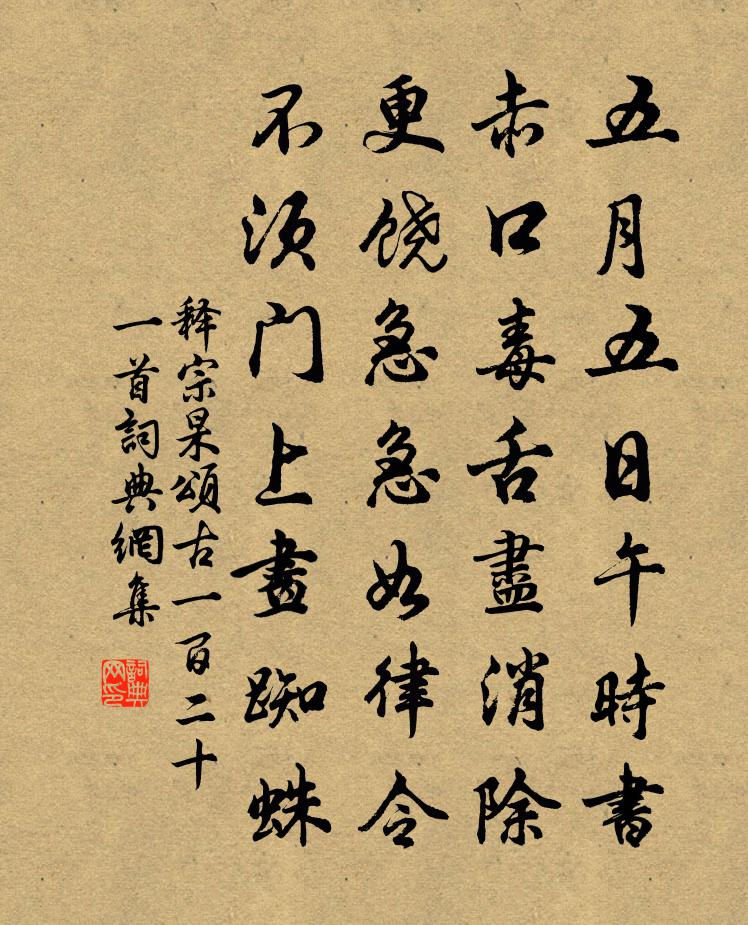 五月五日午時書
赤口毒舌盡消除
更饶急急如律令
不须门上畫蜘蛛
释宗杲頌古一百二十
一首詞典網集
詞典网印